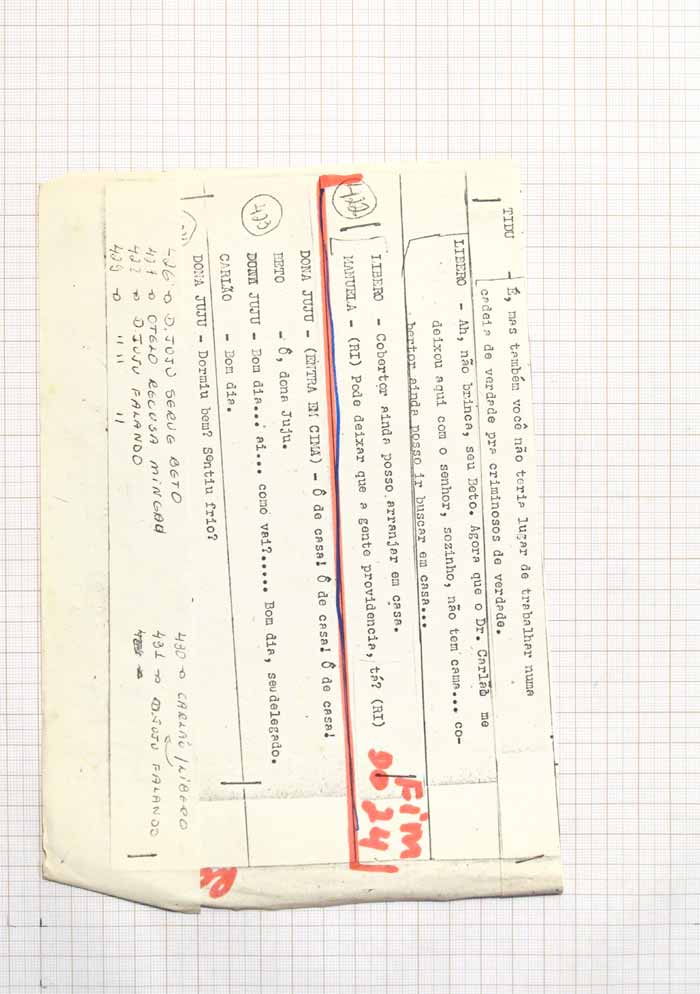 TIDU - É, mas também você não teria lugar de trabalhar numa
cadeia de verdade pra criminosos de verdade.
LIBERO - Ah, não brinca, seu Beto. Agora que o Dr. Carlão me
deixou aqui com o senhor, sozinho, não tem cama... co-
bertor ainda posso ir buscar em casa...
LIBERO - Cobertor ainda posso arranjar em casa.
422
MANUELA - (RI) Pode deixar que a gente providencia, tá? (RI)
Fim
do 24
DONA JUJU - (ENTRA EM CIMA) - Ô de casa! Ô de casa! Ô de casa!
BETO - Ô, dona Juju.
423
DONA JUJU - Bom dia... ai... como vai?..... Bom dia, seu delegado.
CARLÃO - Bom dia.
DONA JUJU - Dormiu bem? Sentiu frio?
426 → D. JUJU SERVE BETO
427 → OTELO RECUSA MINGAU
428 → D JUJU FALANDO
429 → 11 11 11
430 → CARLÃO / LIBERO
431 → D. JUJU FALANDO